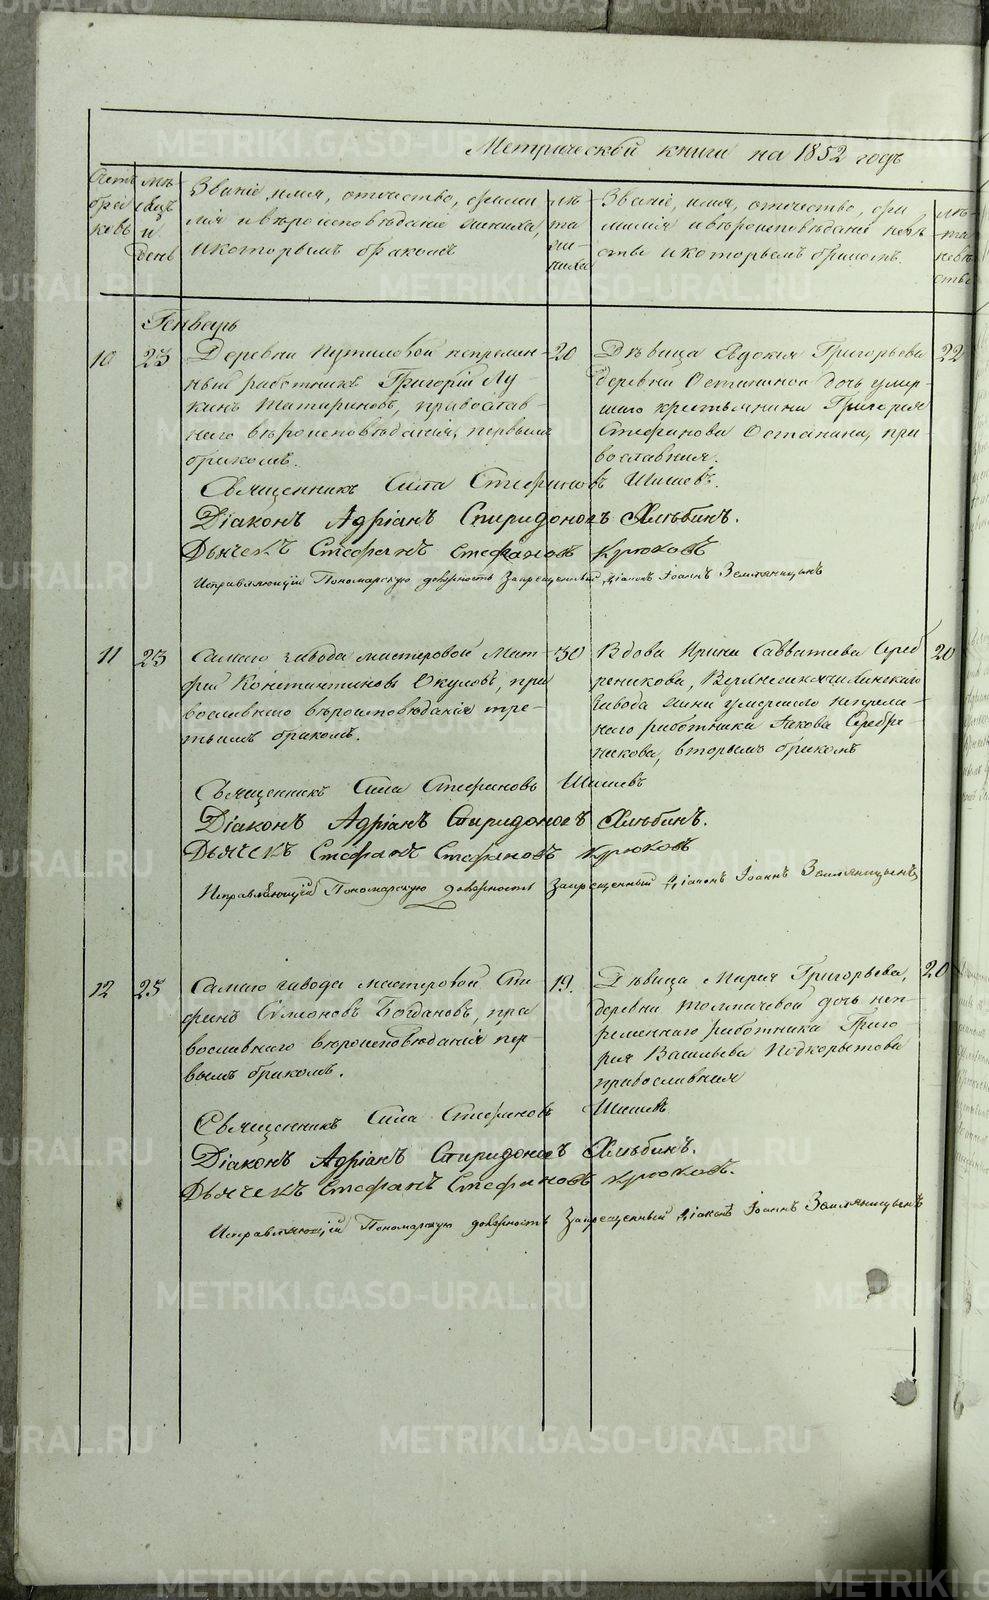 Метрической книги на 1852 годъ
Счетъ браковъ
Мѣсяцъ и день
Званіе, имя, отчество, фамилія и вѣроисповѣданіе жениха, и которымъ бракомъ
лѣта жениха
Званіе, имя, отчество, фамилія и вѣроисповѣданіе невѣсты и которымъ бракомъ.
лѣта невѣсты
Генварь
10 23 Деревни Путиловой непремѣн-
ный работникъ Григорій Лу-
кинъ Татариновъ, православ-
наго вѣроисповѣданія, первымъ
бракомъ.
20
Дѣвица Евдокия Григорьева
деревни Останиной дочь умер-
шаго крестьянина Григория
Стефанова Останина, пра
вославная.
22
Священникъ Сила Стефановъ Шишевъ.
Діаконъ Адріанъ Спиридоновъ Хлыбинъ.
Дьячекъ Стефанъ Стефановъ Крюковъ
Исправляющій Пономарскую должность Запрещенный діаконъ Іоаннъ Земляницынъ
11 23 Самаго завода мастеровой Мат-
фей Константиновъ Окуловъ, пра
вославнаго вѣроисповѣданія тре-
тьимъ бракомъ.
30
Вдова Ирина Савватиева Сереб
реникова, Верхнесинячихинскаго
завода жена умершаго непремѣн
наго работника Иакова Серебре
никова, вторымъ бракомъ
20
Священникъ Сила Стефановъ Шишевъ
Діаконъ Адріанъ Спиридоновъ Хлыбинъ.
Дьячекъ Стефанъ Стефановъ Крюковъ
Исправляющій Пономарскую должность Запрещенный діаконъ Іоаннъ Земляницынъ
12 25 Самаго завода мастеровой Сте
фанъ Симеоновъ Богдановъ, пра
вославнаго вѣроисповѣданія пер
вымъ бракомъ.
19.
Дѣвица Мария Григорьева,
деревни Толмачевой дочь неп-
ременнаго работника Григо
рия Васильева Подкорытова
православная
20
Священникъ Сила Стефановъ Шишевъ
Діаконъ Адріанъ Спиридоновъ Хлыбинъ.
Дьячекъ Стефанъ Стефановъ Крюковъ.
Исправляющій Пономарскую должность Запрещенный діаконъ Іоаннъ Земляницынъ
METRIKI.GASO-URAL.RU